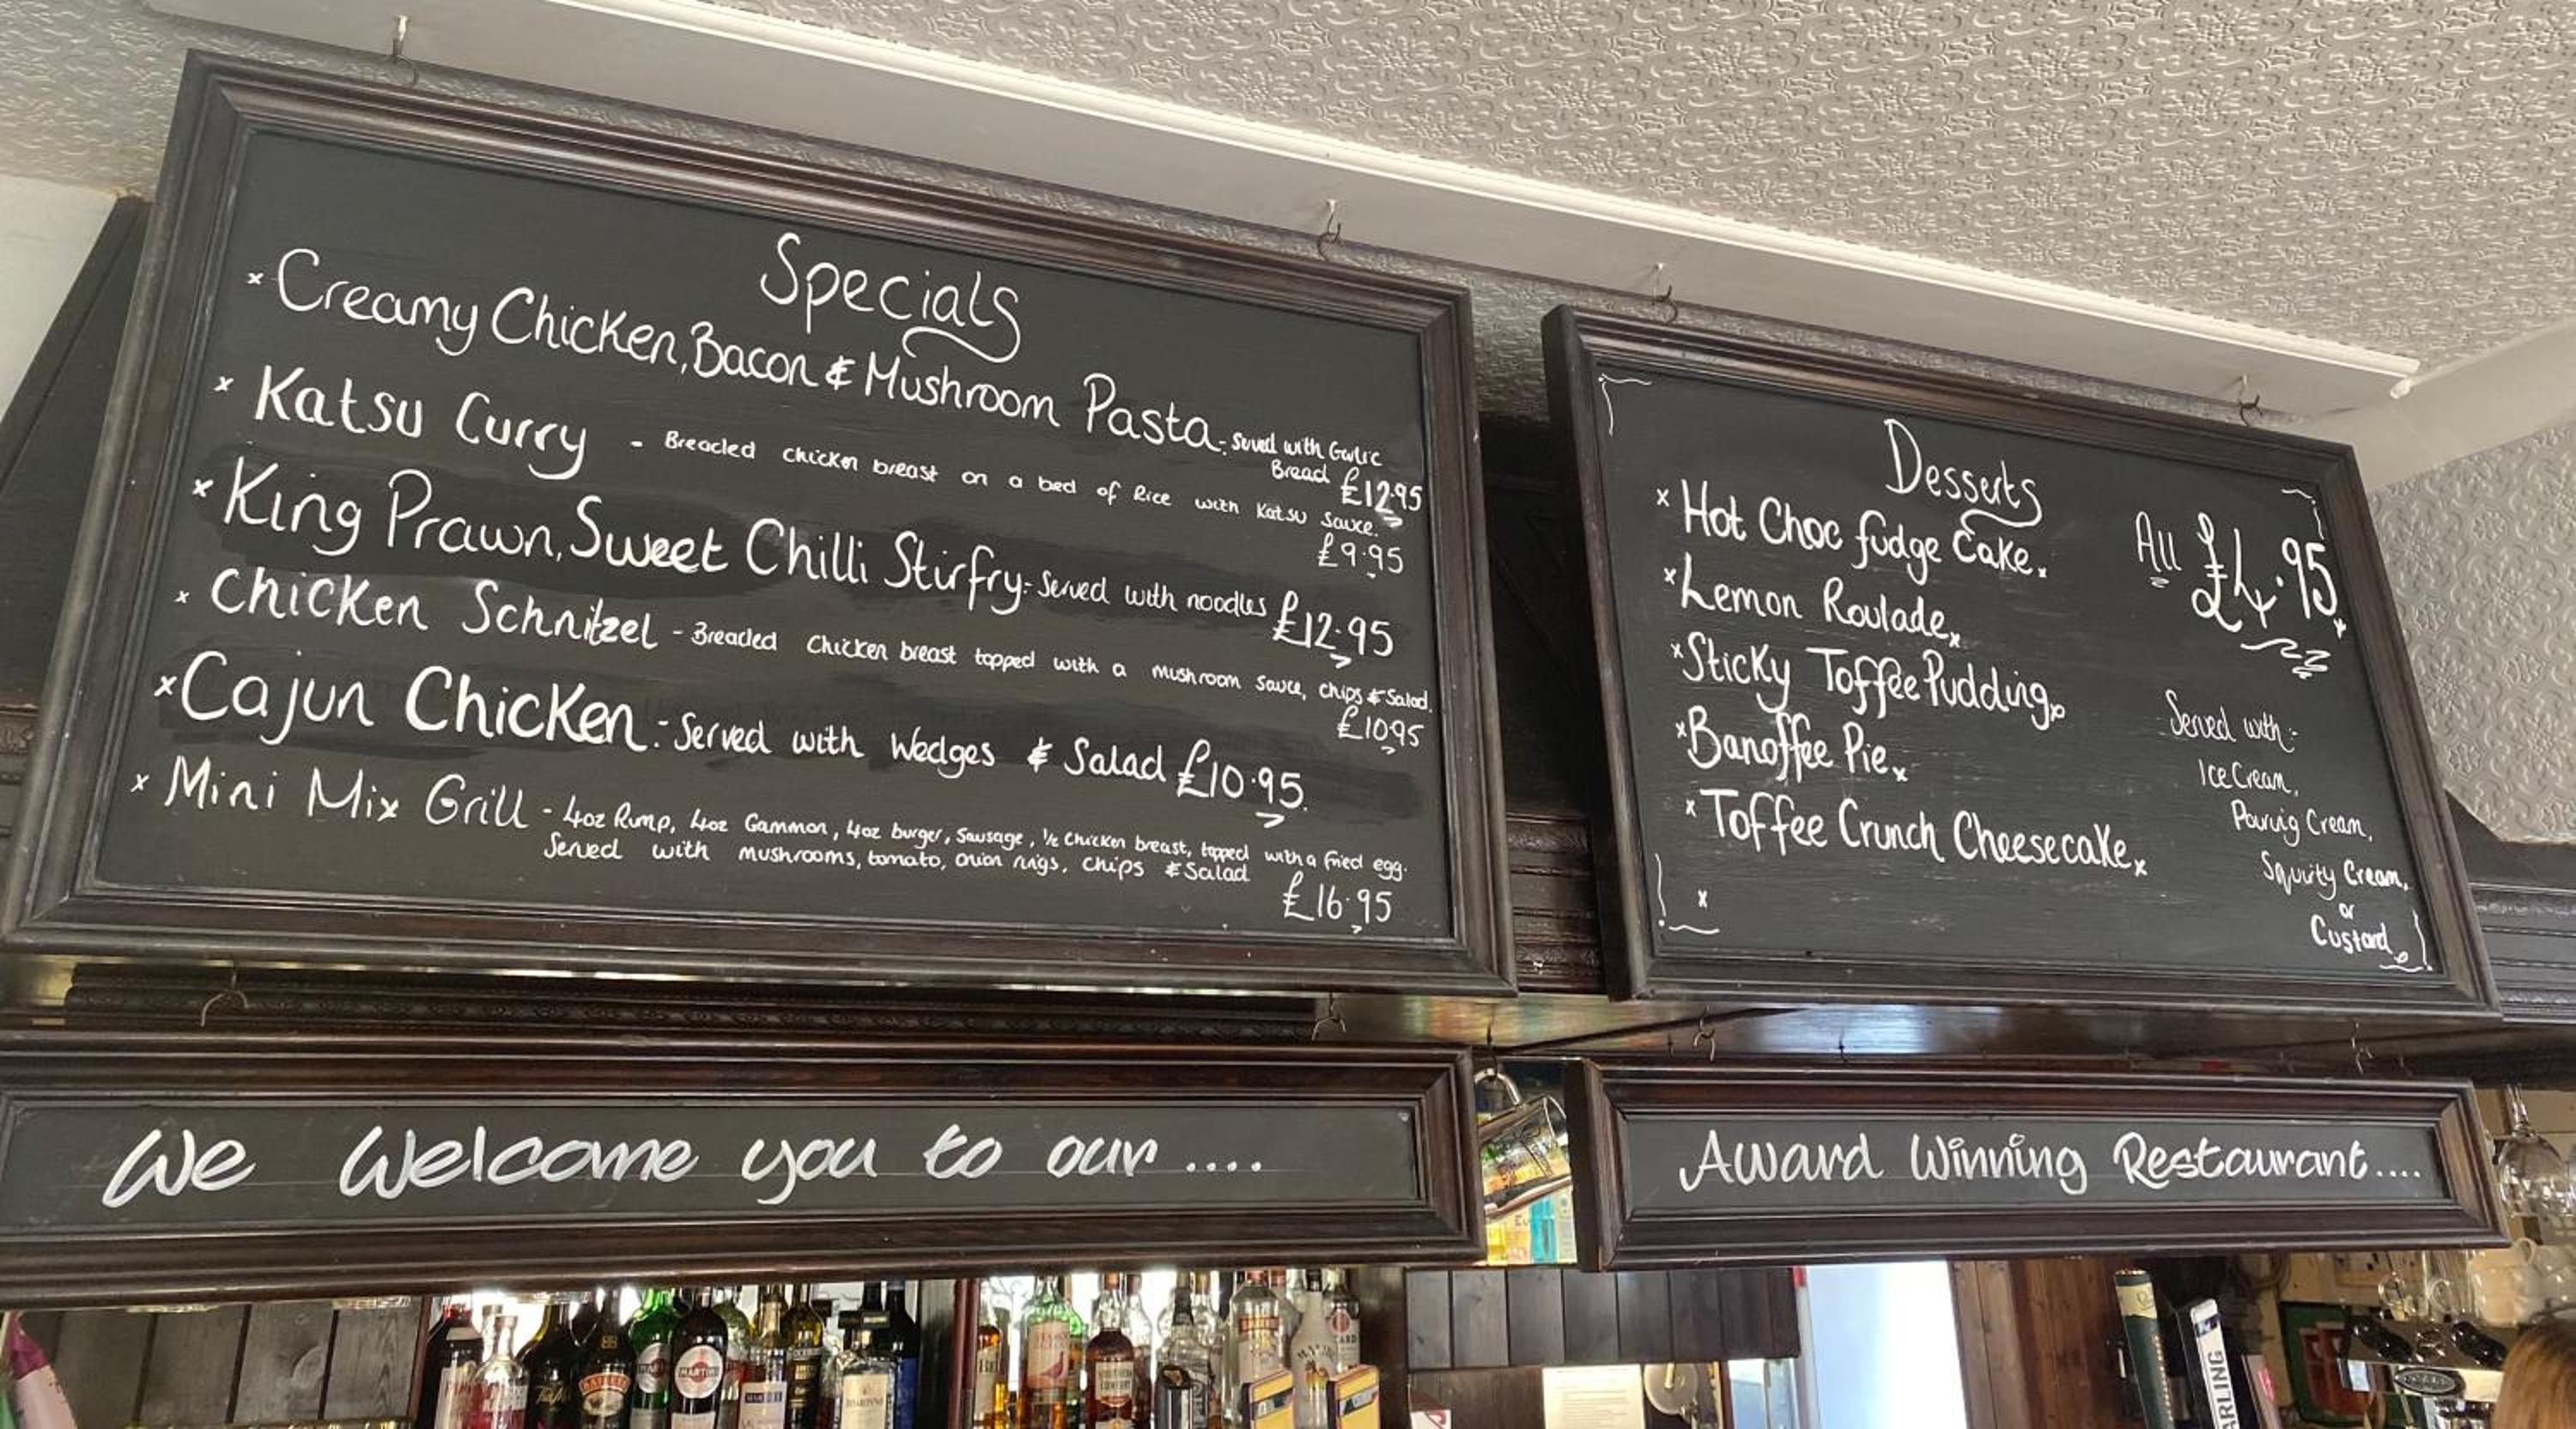 Specials
× Creamy Chicken, Bacon & Mushroom Pasta - Served with Garlic
Bread £12.95
× Katsu Curry - Breaded chicken breast on a bed of Rice with Katsu Sauce.
£9.95
× King Prawn, Sweet Chilli Stirfry - Served with noodles £12.95
× Chicken Schnitzel - Breaded Chicken breast topped with a mushroom sauce, chips & Salad.
£10.95
× Cajun Chicken - Served with Wedges & Salad £10.95.
× Mini Mix Grill - 4oz Rump, 4oz Gammon, 4oz burger, Sausage, ½ Chicken breast, topped with a fried egg.
Served with mushrooms, tomato, onion rings, chips & Salad
£16.95
Desserts
× Hot Choc fudge Cake.
× Lemon Roulade
× Sticky Toffee Pudding
× Banoffee Pie
× Toffee Crunch Cheesecake
All £4.95
Served with:-
Ice Cream,
Pouring Cream,
Squirty Cream,
or
Custard
We Welcome you to our ....
Award Winning Restaurant....
MARTINI
BAILEYS
ARLING